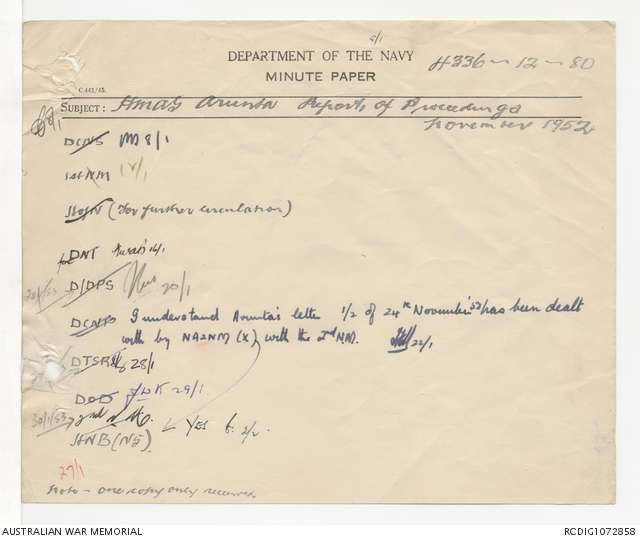 DEPARTMENT OF THE NAVY
MINUTE PAPER
4336-12-80
C.443/45.
SUBJECT: HMAS Arunta Reports of Proceedings
November 1952
DCNS 8/1
1stNM
(for further circulation)
for DNT 16/1
20/1/53 D/DPS 20/1
DCNS I understand Arunta's letter 1/2 of 24th November '52 has been dealt
with by NA2NM (X) with the 2nd NM. 22/1
DTSR 28/1
DOD 29/1
30/1/53 2nd N.M.
HNB (NS). Yes 2/2.
27/1
Note - one copy only received
AUSTRALIAN WAR MEMORIAL
RCDIG1072858